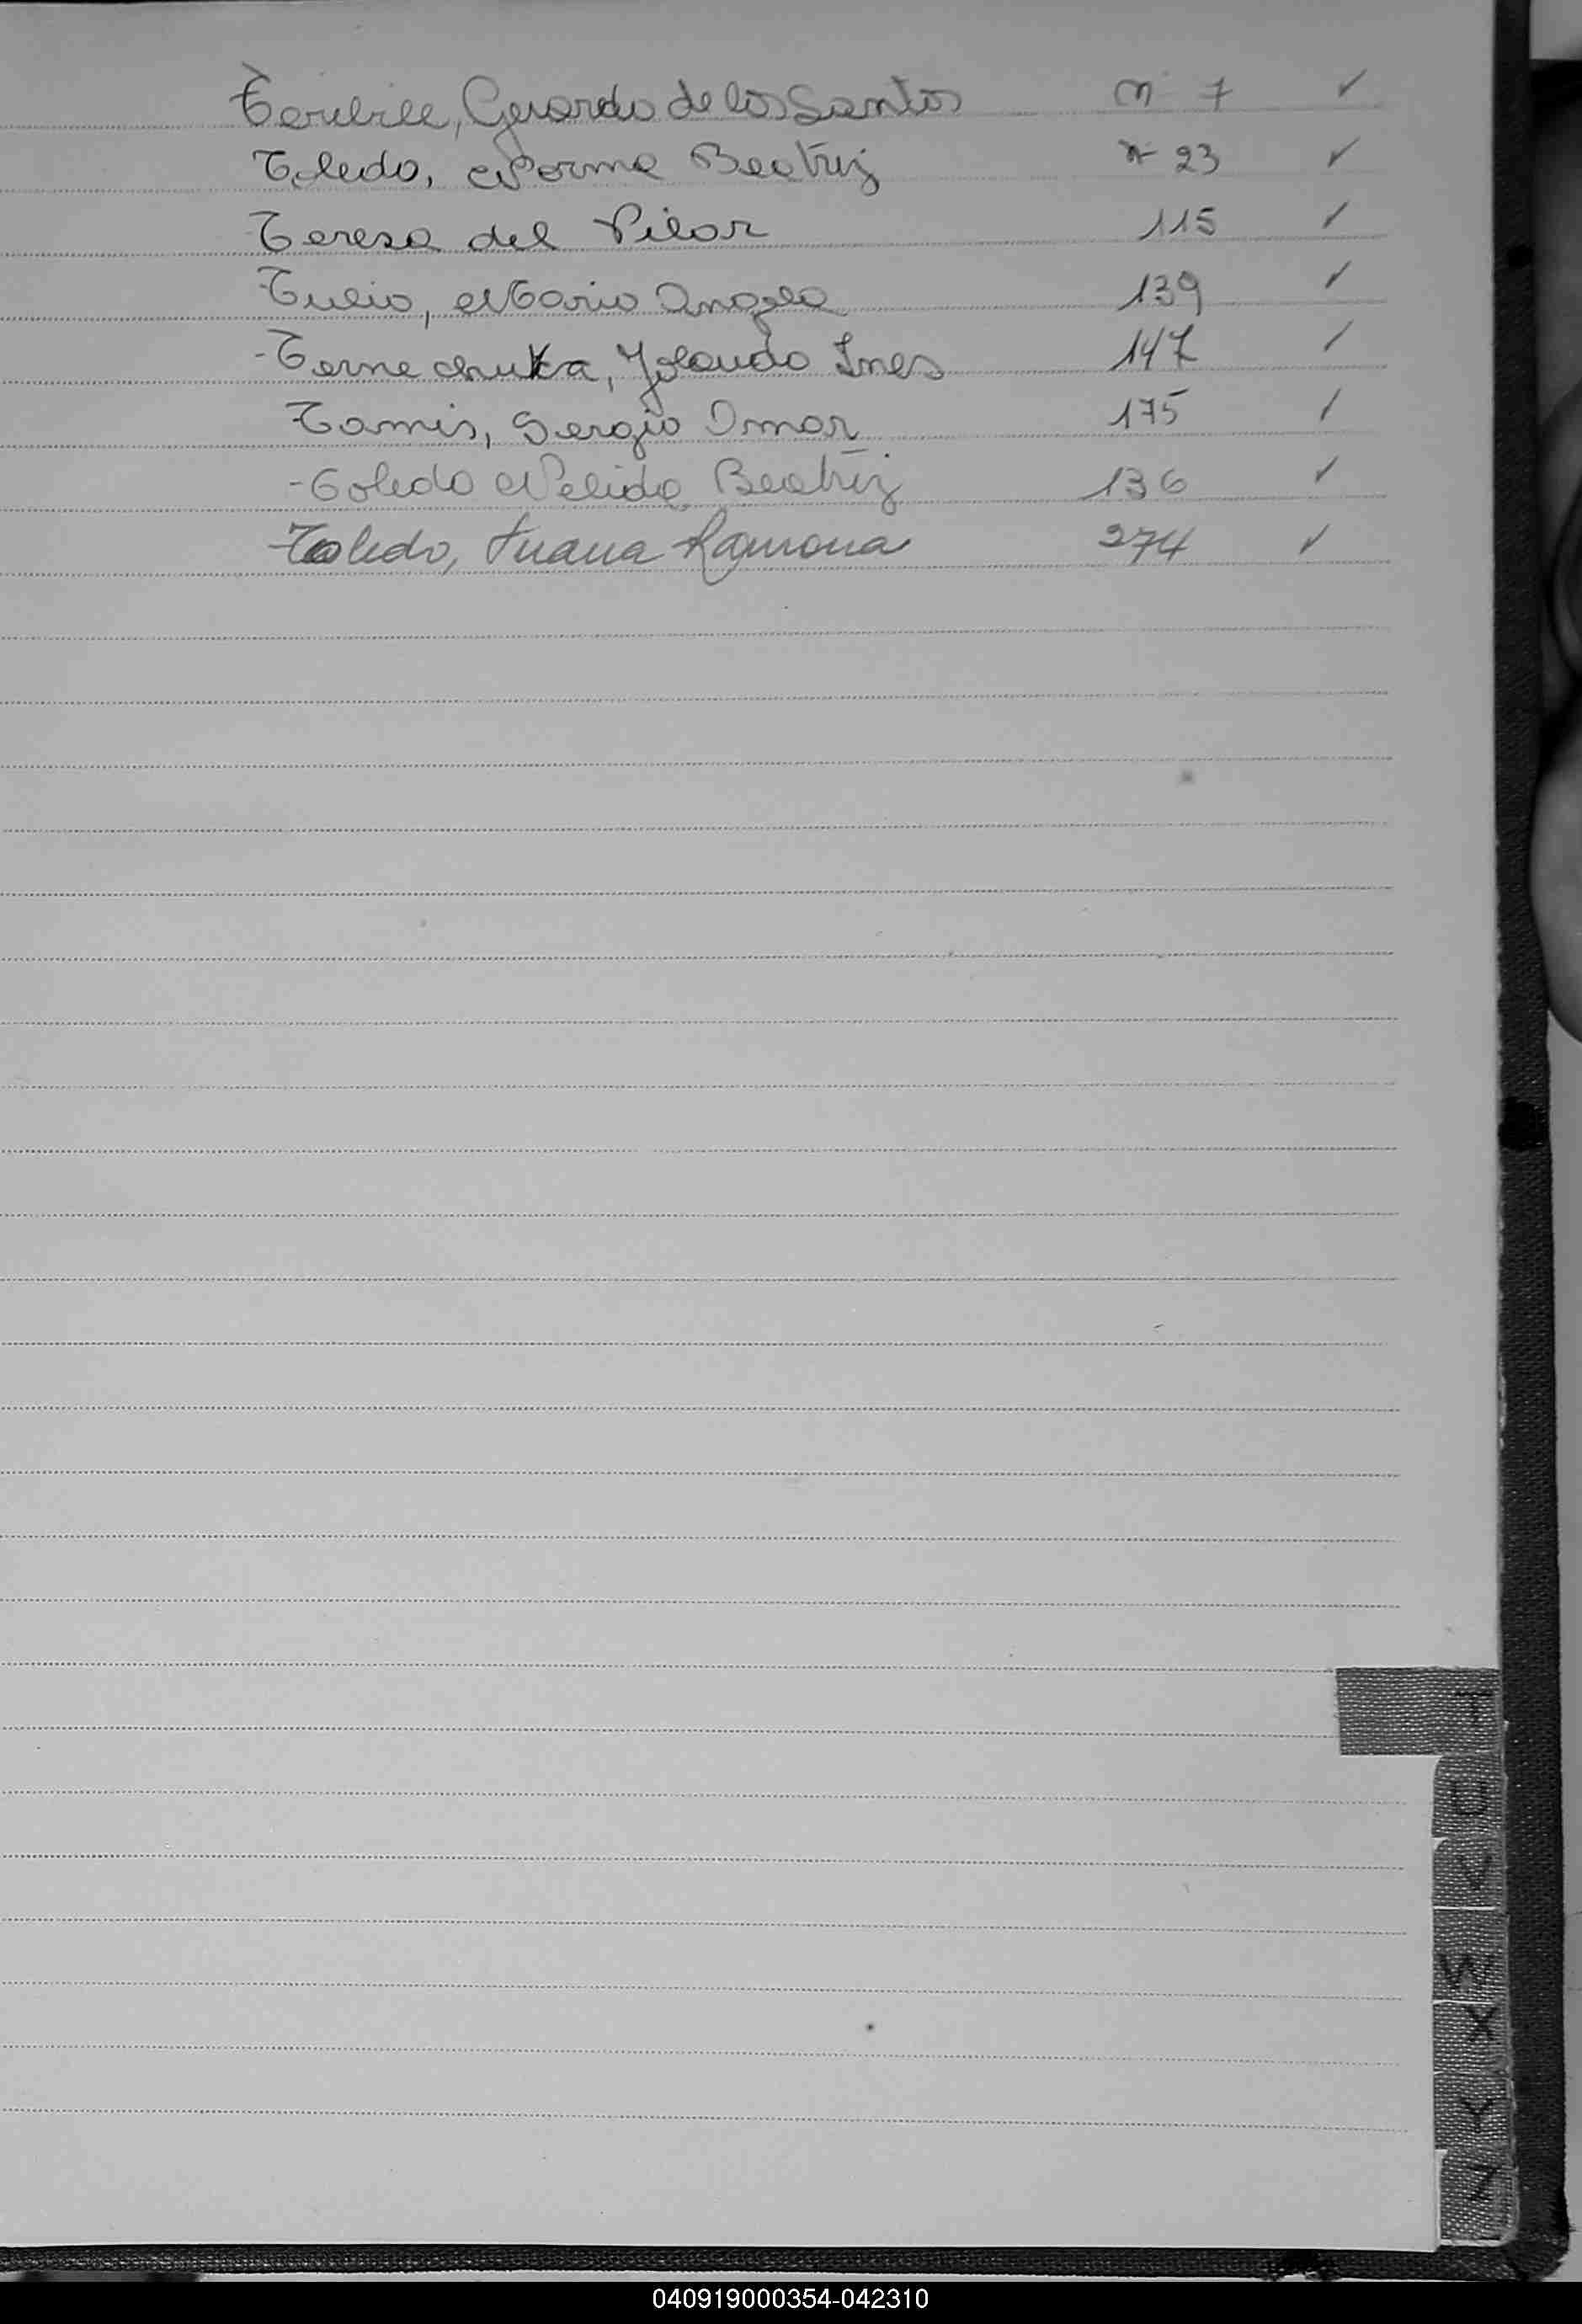 Terrible, Gerardo de los Santos n° 7 ✓
Toledo, Norma Beatriz n° 23 ✓
Teresa del Pilar 115 ✓
Tulio, Mario Angelo 139 ✓
-Ternechuka, Yolanda Ines 147 ✓
Tomis, Sergio Omar 175 ✓
-Toledo Nelida, Beatriz 136 ✓
Toledo, Juana Ramona 274 ✓
T
U
V
W
X
Y
Z
040919000354-042310